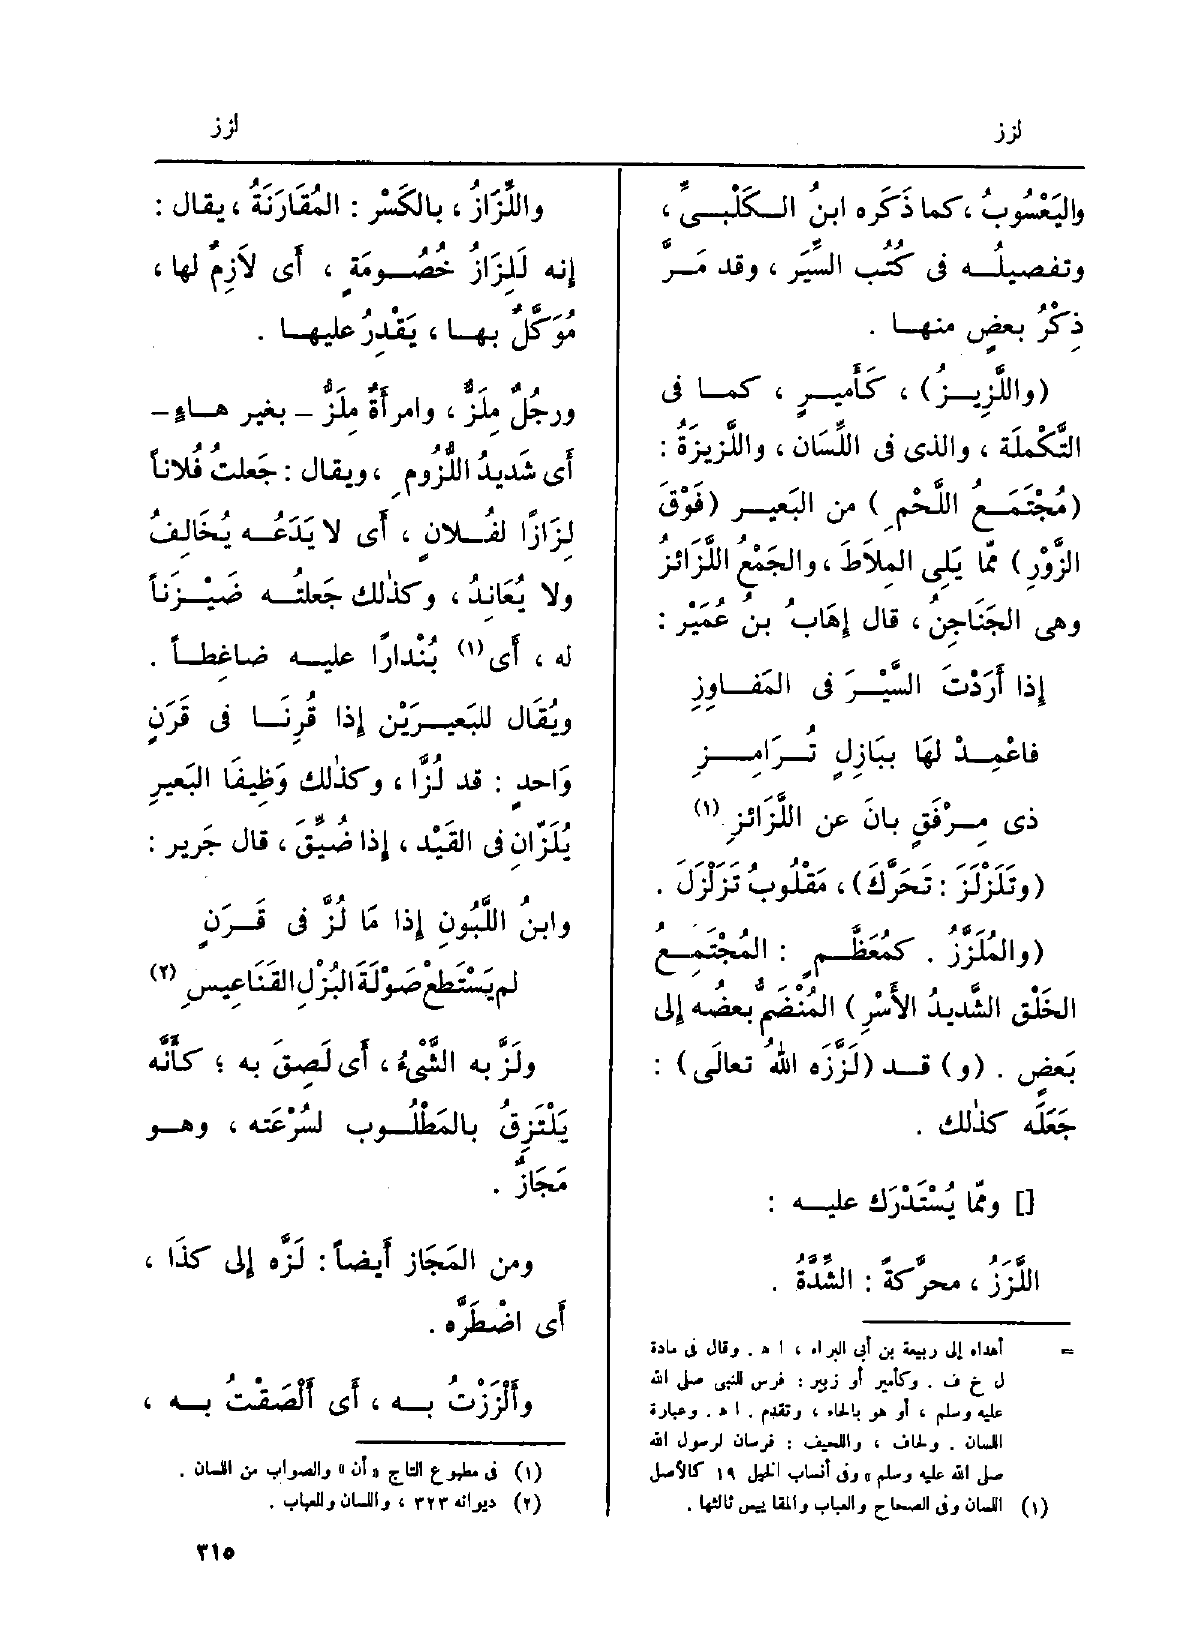 لزز
لزز
واليَعْسُوبُ ، كما ذَكَره ابنُ الكَلْبِىِّ ،
وتفصيلُه فى كُتُب السِّيَر ، وقد مَرَّ
ذِكْرُ بعضٍ منها .
(واللَّزِيزُ) ، كَأَميرٍ ، كما فى
التَّكْملَة ، والذى فى اللِّسَان ، واللَّزيزَةُ :
(مُجْتَمَعُ اللَّحْمِ) من البَعيرِ (فَوْقَ
الزَّوْرِ) ممّا يَلِى المِلاَطَ ، والجَمْعُ اللَّزَائزُ
وهى الجَنَاجِنُ ، قال إهَابُ بنُ عُمَيْرٍ :
إذا أَرَدْتَ السَّيْرَ فى المَفَاوِزِ
فاعْمِدْ لهَا ببَازِلٍ تُرَامِزِ
ذى مِرْفَقٍ بانَ عن اللَّزَائزِ (١)
(وتَلَزْلَزَ : تَحَرَّكَ) ، مَقْلُوبُ تَزَلْزَلَ .
(والمُلَزَّزُ . كمُعَظَّمٍ : المُجْتَمِعُ
الخَلْقِ الشَّديدُ الأَسْرِ) المُنْضَمُّ بعضُه إلى
بَعضٍ . (و) قد (لَزَّزَه اللهُ تعالَى) :
جَعَلَه كذٰلك .
[] وممّا يُسْتَدْرَك عليه :
اللَّزَزُ ، محرَّكةً : الشِّدَّةُ .
= أهداه إلى ربيعة بن أبى البراء ، ا ه . وقال فى مادة
ل خ ف . وكأمير أو زبير : فرس للنبى صلى الله
عليه وسلم ، أو هو بالحاء ، وتقدم . ا ه . وعبارة
اللسان . ولحاف ، واللحيف : فرسان لرسول الله
صلى الله عليه وسلم » وفى أنساب الخيل ١٩ كالأصل
(١) اللسان وفى الصحاح والعباب والمقاييس ثالثها .
واللِّزَازُ ، بالكَسْر : المُقَارَنَةُ ، يقال :
إنه لَلِزَازُ خُصُومَةٍ ، أى لاَزِمٌ لها ،
مُوَكَّلٌ بها ، يَقْدِرُ عليها .
ورجُلٌ مِلَزٌّ ، وامرأَةٌ مِلَزٌّ – بغير هاءٍ –
أى شَديدُ اللُّزُومِ ، ويقال : جَعلتُ فُلاناً
لِزَازًا لفُلانٍ ، أى لا يَدَعُه يُخَالِفُ
ولا يُعَاندُ ، وكذٰلك جَعلتُه ضَيْزَناً
له ، أى (١) بُنْدارًا عليه ضاغطاً .
ويُقَال للبَعيرَيْنِ إذا قُرِنَا فى قَرَنٍ
وَاحدٍ : قد لُزَّا ، وكذٰلك وَظِيفَا البَعيرِ
يُلَزّانِ فى القَيْدِ ، إذا ضُيِّقَ ، قال جَرير :
وابنُ اللَّبُونِ إذا مَا لُزَّ فى قَرَنٍ
لم يَسْتَطعْ صَوْلَةَ البُزْلِ القَنَاعيسِ (٢)
ولَزَّ به الشَّىْءُ ، أى لَصِقَ به ؛ كأَنَّه
يَلْتَزِقُ بالمَطْلُوب لسُرْعَته ، وهو
مَجَازٌ .
ومن المَجَاز أيضاً : لَزَّه إلى كَذَا ،
أى اضْطَرَّه .
وأَلْزَزْتُ به ، أى أَلْصَقْتُ به ،
(١) فى مطبوع التاج « أن » والصواب من اللسان .
(٢) ديوانه ٣٢٣ ، واللسان والعباب .
٣١٥